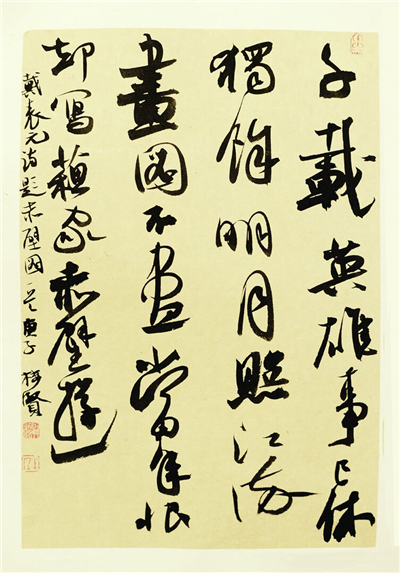 千載英雄事已休
獨餘明月照江流
畫圖不盡當年恨
却寫蘇家赤壁游
戴表元詩題赤壁圖 庚子 賢